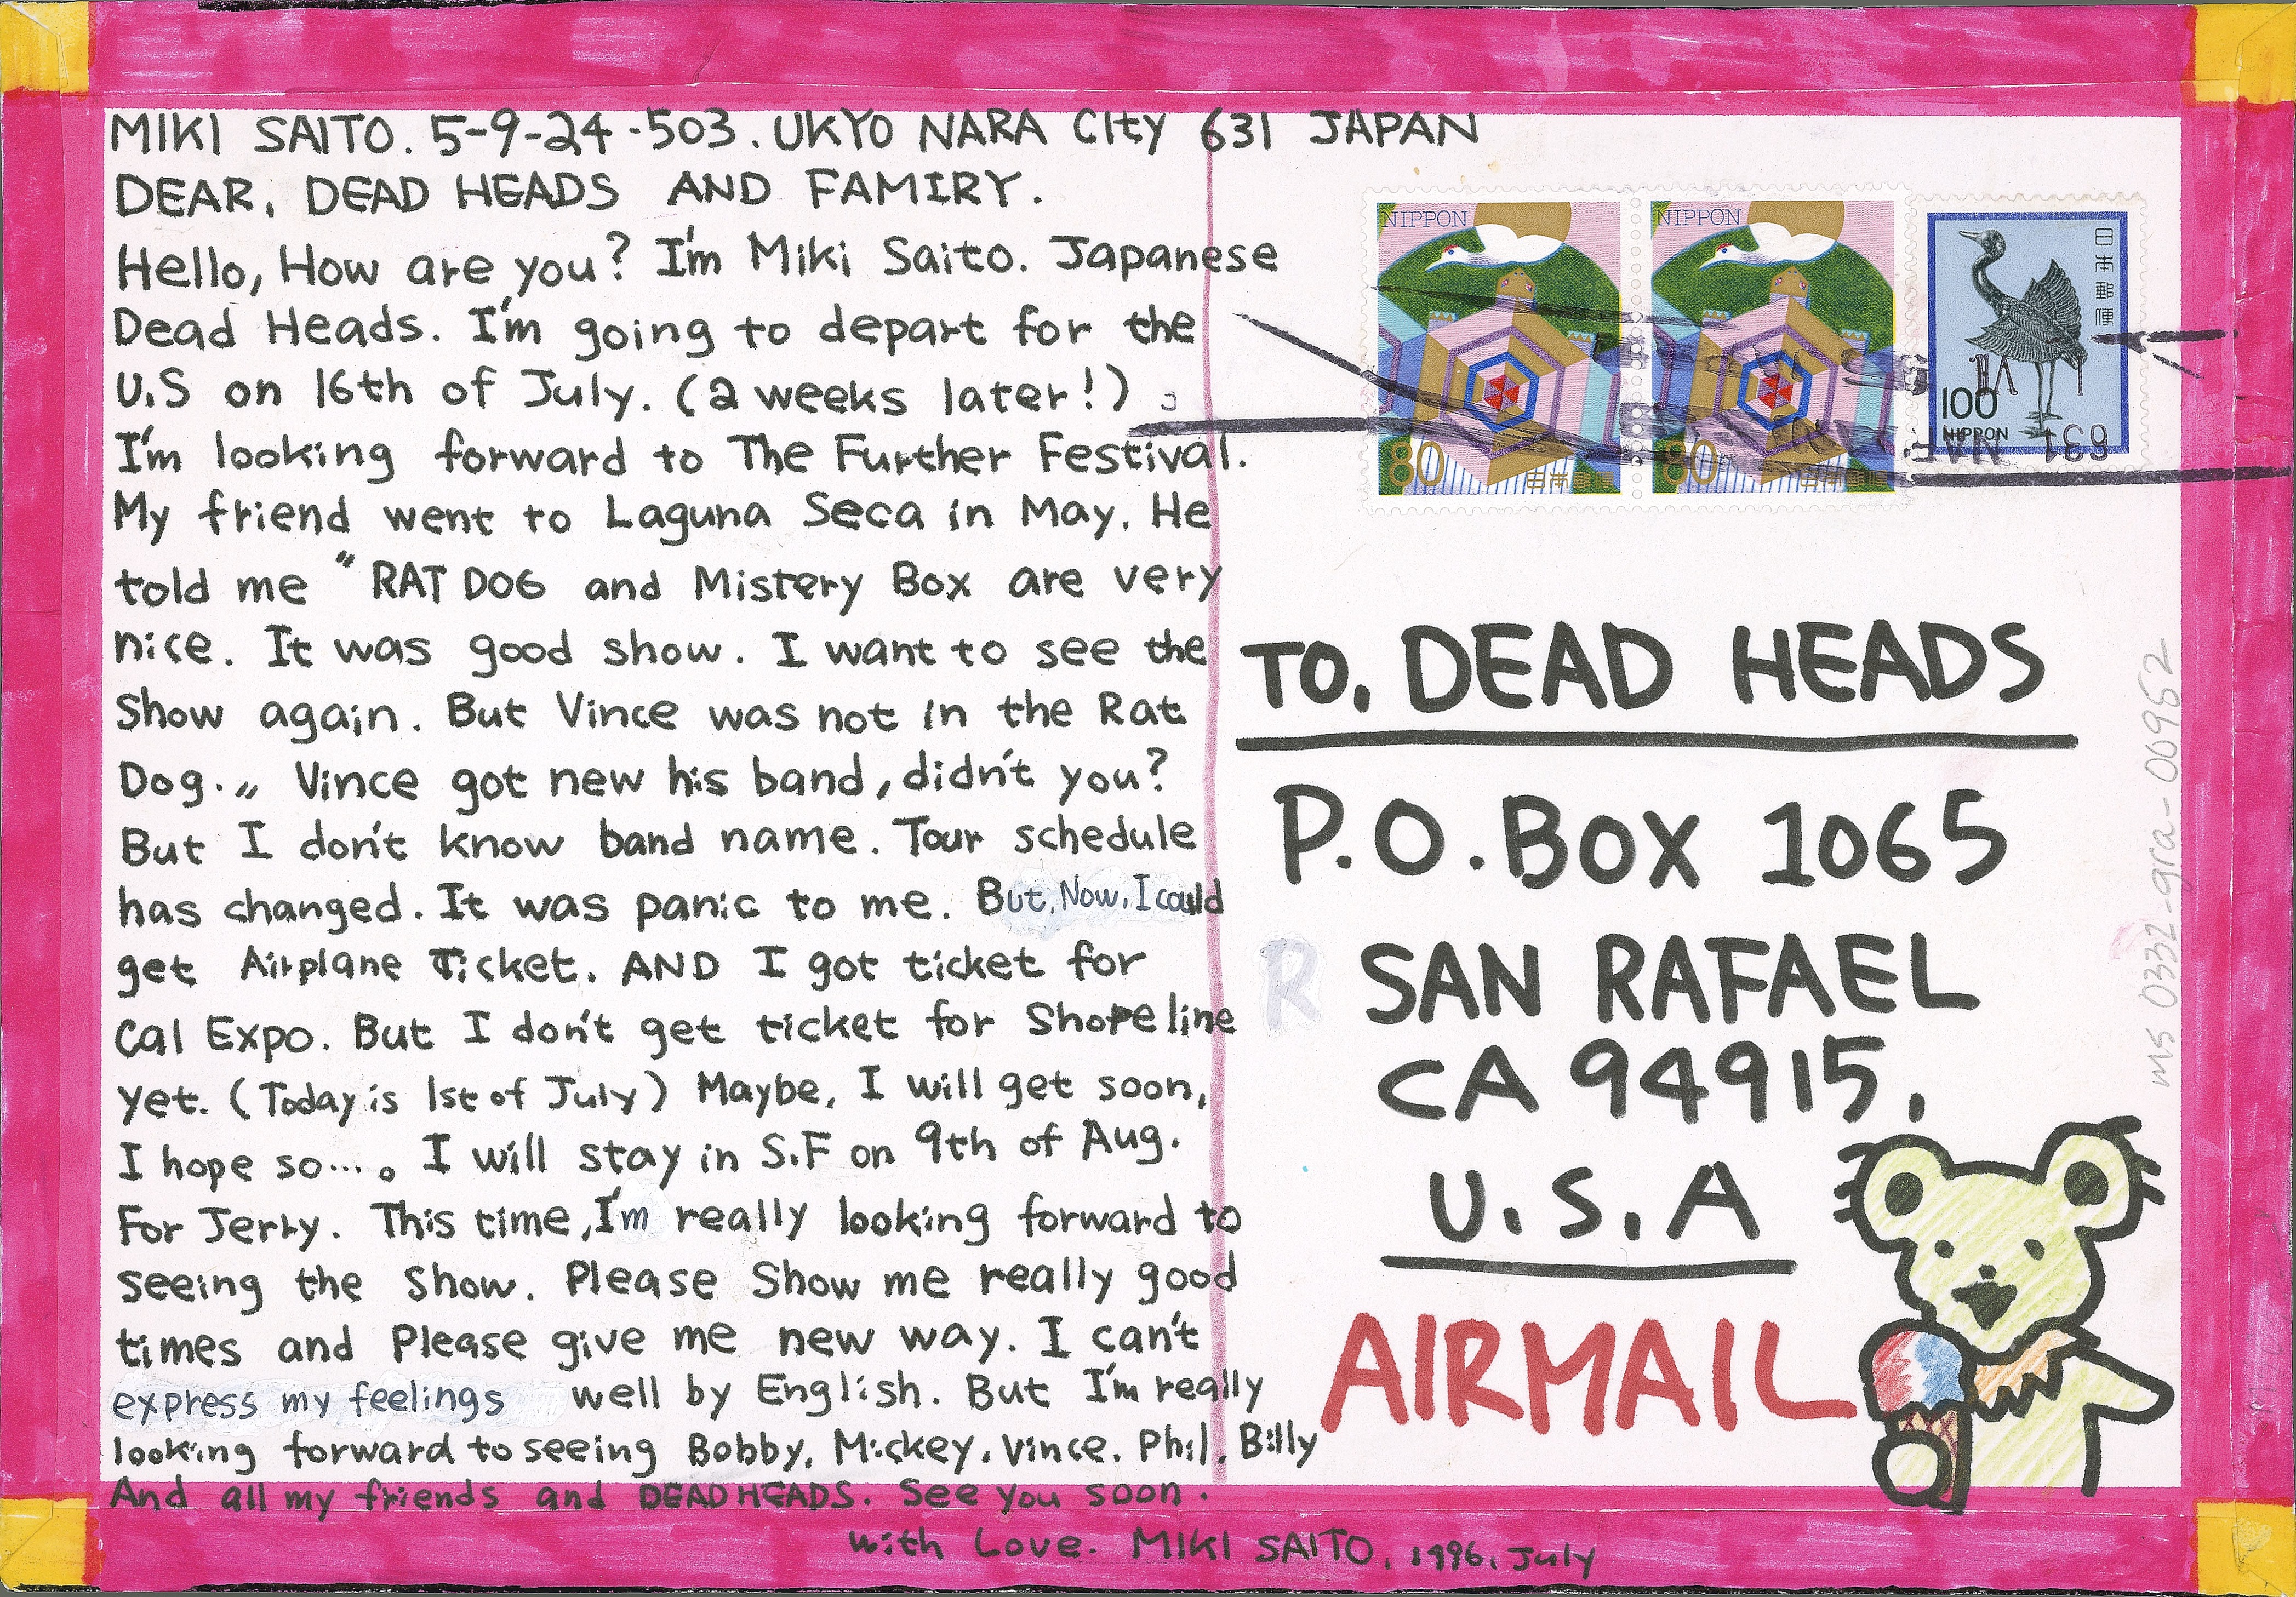 MIKI SAITO. 5-9-24-503. UKYO NARA City 631 JAPAN
DEAR, DEAD HEADS AND FAMIRY.
Hello, How are you? I'm Miki Saito. Japanese
Dead Heads. I'm going to depart for the
U.S on 16th of July. (2 weeks later!)
I'm looking forward to The Further Festival.
My friend went to Laguna Seca in May. He
told me "RAT DOG and Mistery Box are very
nice. It was good show. I want to see the
Show again. But Vince was not in the Rat
Dog." Vince got new his band, didn't you?
But I don't know band name. Tour schedule
has changed. It was panic to me. But, Now, I could
get Airplane Ticket. AND I got ticket for
Cal Expo. But I don't get ticket for Shoreline
yet. (Today is 1st of July) Maybe, I will get soon,
I hope so...。 I will stay in S.F on 9th of Aug.
For Jerry. This time, I'm really looking forward to
seeing the Show. Please Show me really good
times and Please give me new way. I can't
express my feelings well by English. But I'm really
looking forward to seeing Bobby, Mickey, Vince, Phil, Billy
And all my friends and DEAD HEADS. See you soon.
with Love. MIKI SAITO, 1996, July
NIPPON
80
日本郵便
NIPPON
80
日本郵便
日本郵便
100
NIPPON
631
TO, DEAD HEADS
P.O. BOX 1065
R SAN RAFAEL
CA 94915,
U.S.A
AIRMAIL
ms 0332-gra-00952